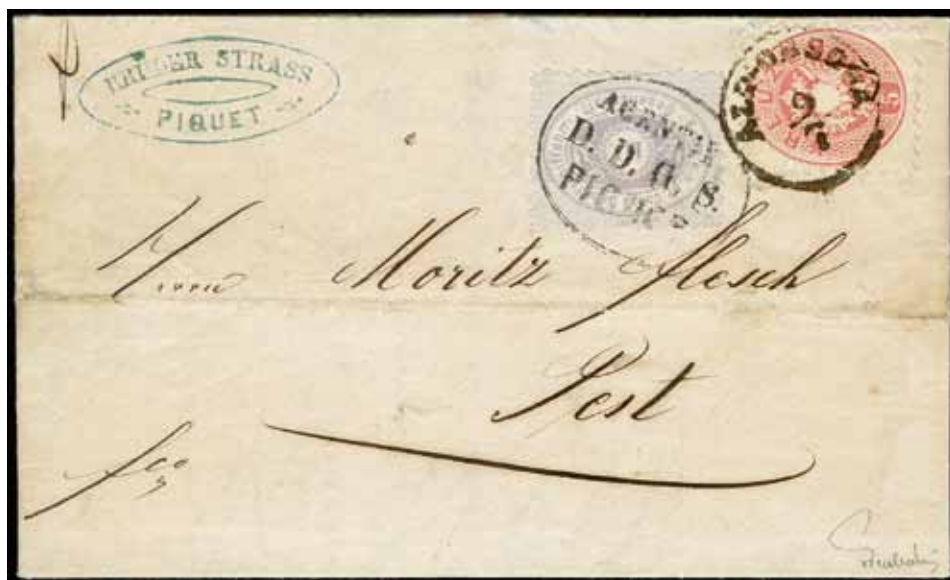 STRASS
PIQUET
AGENTIE
D. D. G. S.
PIQUET
ALT-ORSOVA
9/6
Herrn Moritz Flesch
Pest
fco